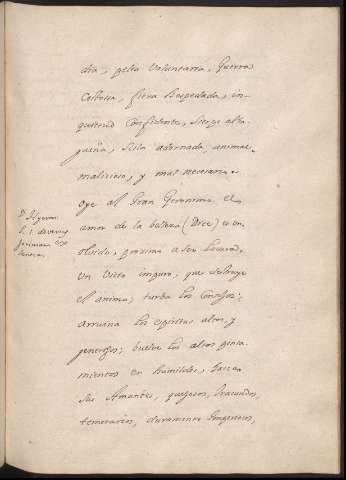 dia, pelea Voluntaria, Guerra
Costosa, fiera Hospedada, in-
quietud Confidente, sierpe alha-
gueña, Scila adornada, animal
malicioso, y mal necesario.
Oye al Gran Geronimo, el
amor de la belleza (Dice) es un
olvido, proximo a ser locura,
un Vicio impuro, que destruye
el animo, turba los Consejos:
arruina los espiritus altos, y
generosos; buelve los altos pensa-
mientos en humildes, hace a
sus Amantes, quejosos, Iracundos,
temerarios, duramente Imperiosos,
D. Hyeron.
L. 1. advers.
Jovinian. ex
Seneca.